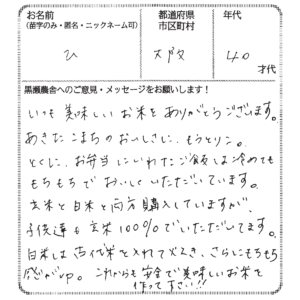 お名前
(苗字のみ・匿名・ニックネーム可)
都道府県
市区町村
年代
ひ
大阪
40
才代
黒瀬農舎へのご意見・メッセージをお願いします!
いつも美味しいお米をありがとうございます。
あきたこまちのおいしさに、もうとりこ。
とくに、お弁当にいれたご飯は冷めても
もちもちでおいしくいただいています。
玄米と白米と両方購入していますが、
子供達も玄米100%でいただいてます。
白米は古代米を入れて炊き、さらにもちもち
感がup。これからも安全で美味しいお米を
作って下さい!!